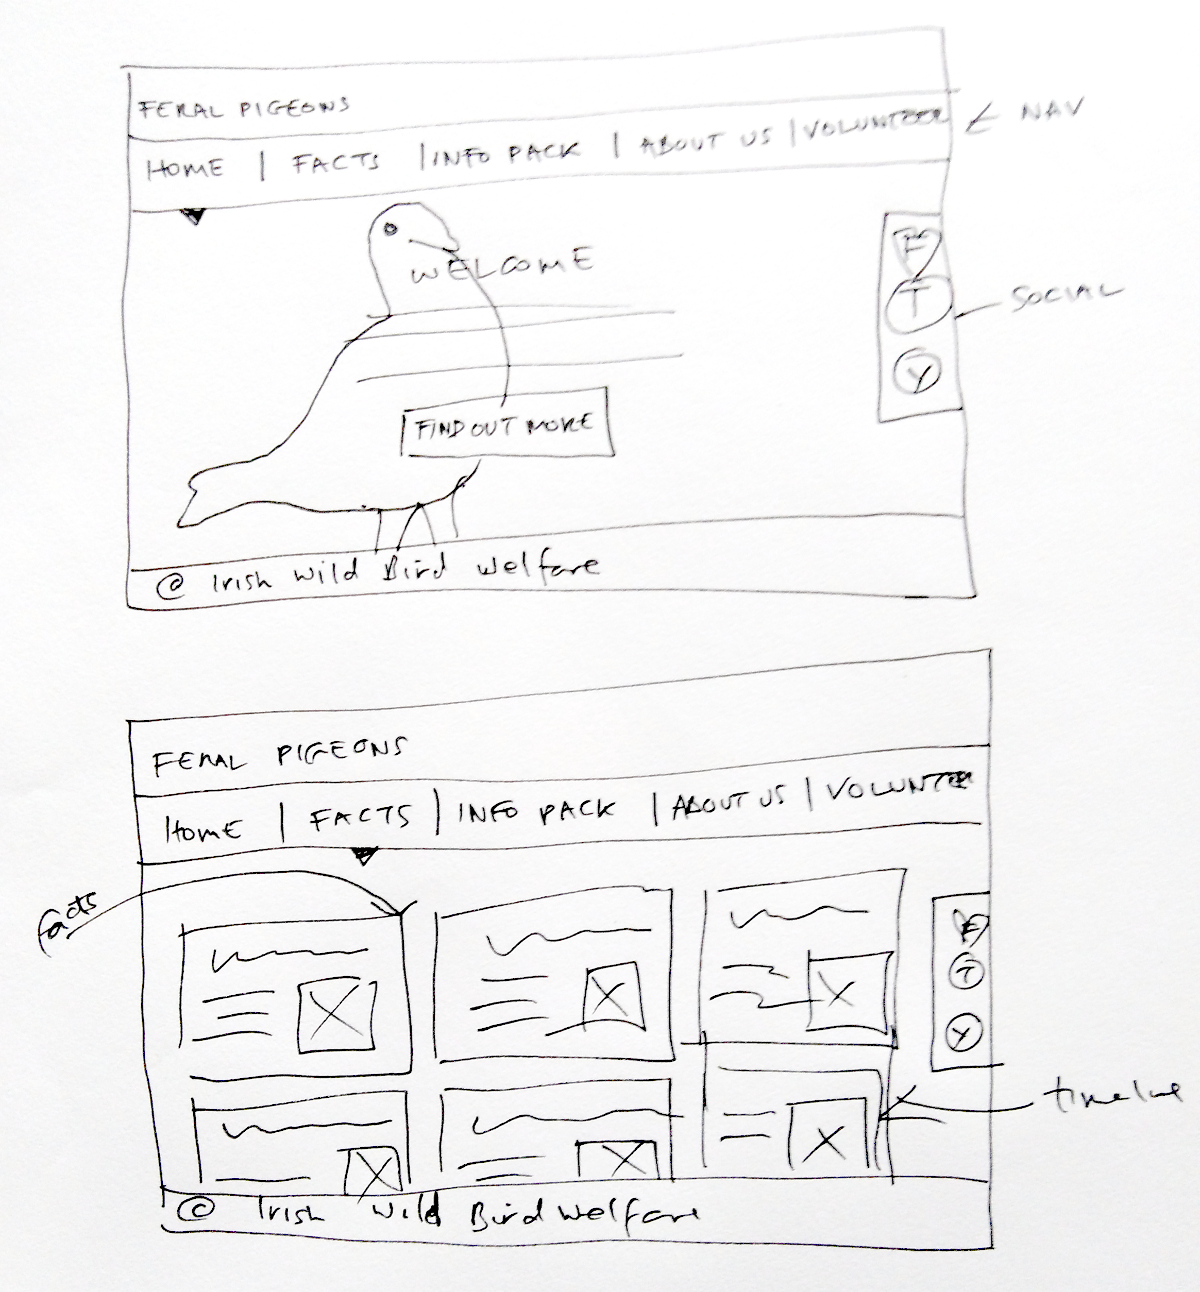 FERAL PIGEONS
HOME | FACTS | INFO PACK | ABOUT US | VOLUNTEER
NAV
WELCOME
F
T
SOCIAL
Y
FIND OUT MORE
@ Irish Wild Bird Welfare
FERAL PIGEONS
HOME | FACTS | INFO PACK | ABOUT US | VOLUNTEE
facts
F
T
Y
timeline
© Irish Wild Bird Welfare